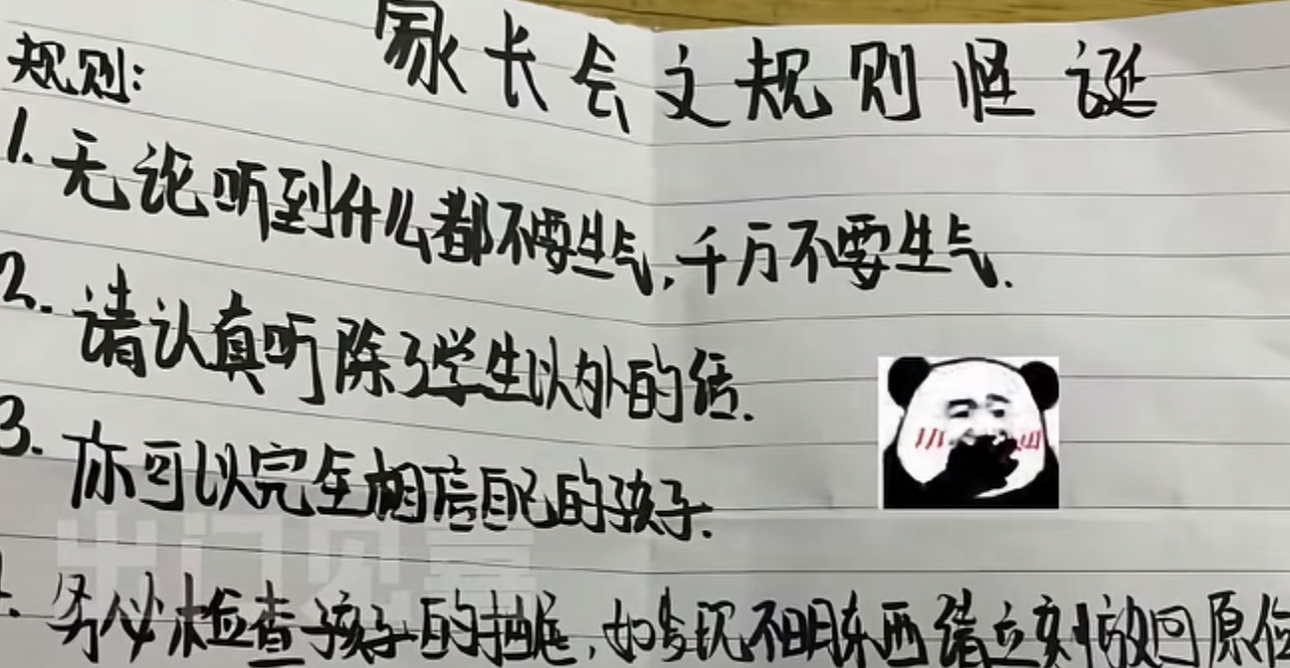 家长会之规则怪诞
规则:
1.无论听到什么都不要生气,千万不要生气.
2.请认真听除了学生以外的话.
3.你可以完全相信自己的孩子.
务必检查孩子的抽屉,如发现不明东西请立刻放回原位